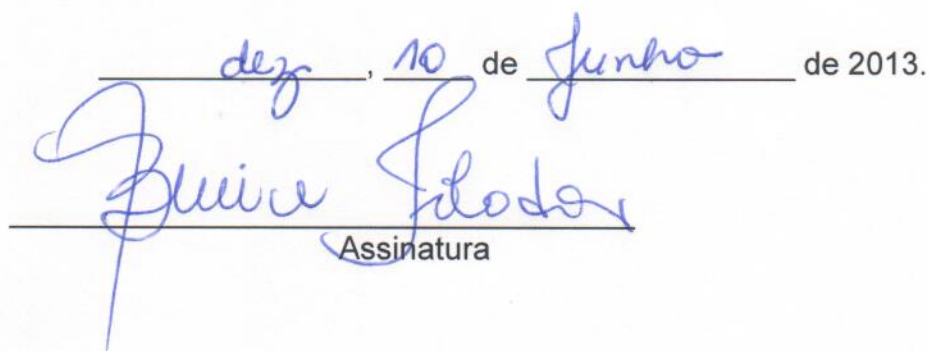 dez, 10 de Junho de 2013.
Assinatura